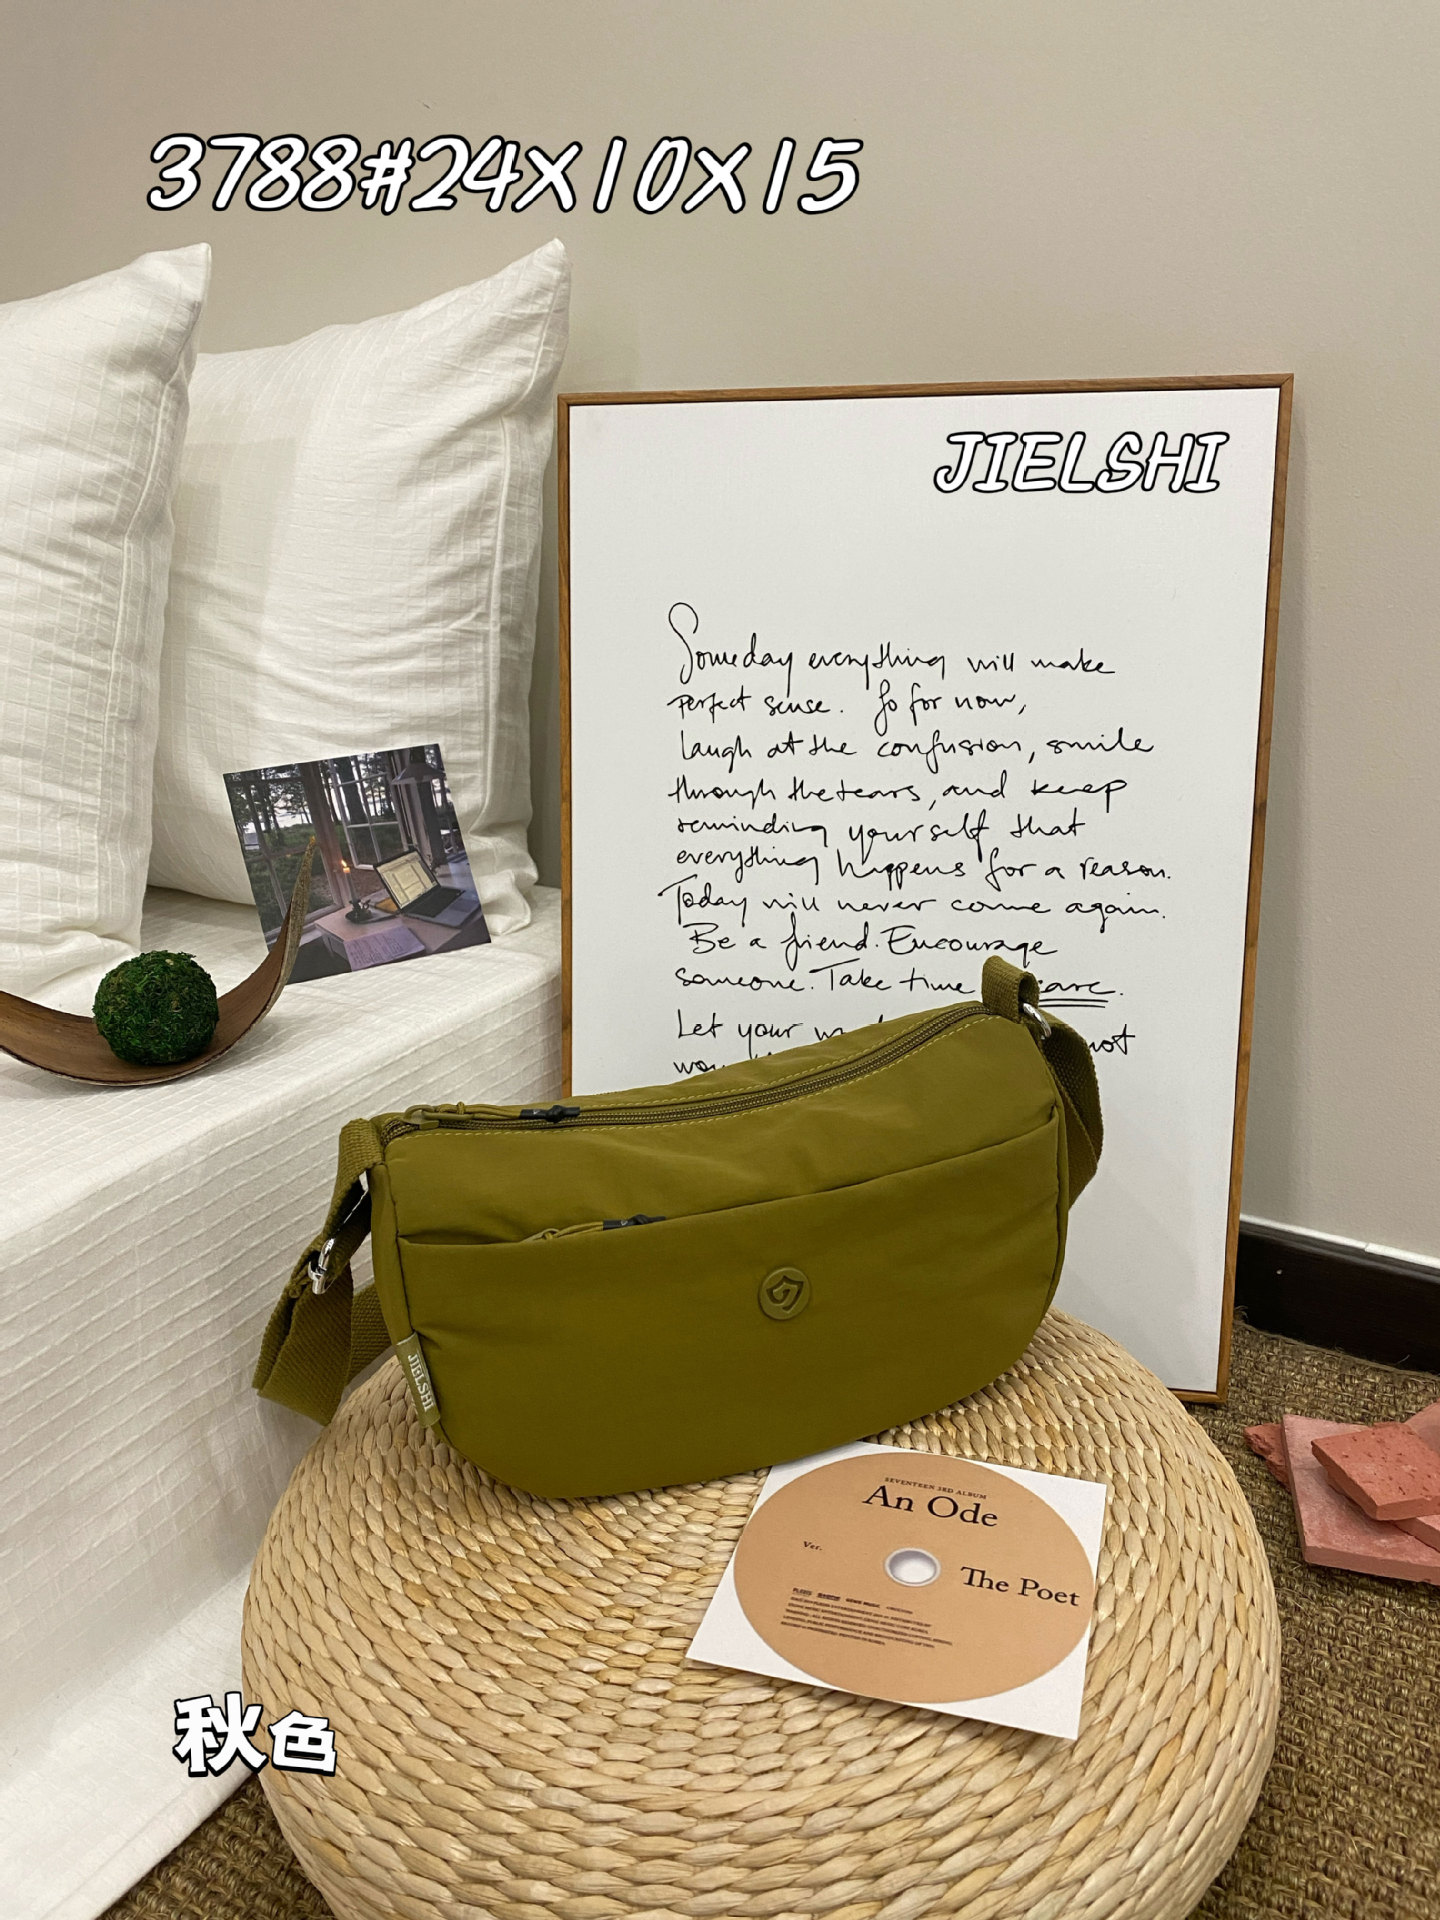 3788#24X10X15
JIELSHI
Someday everything will make
perfect sense. So for now,
laugh at the confusion, smile
through the tears, and keep
reminding yourself that
everything happens for a reason.
Today will never come again.
Be a friend. Encourage
someone. Take time care.
Let your not
JIELSHI
SEVENTEEN 3RD ALBUM
An Ode
Ver.
The Poet
秋色